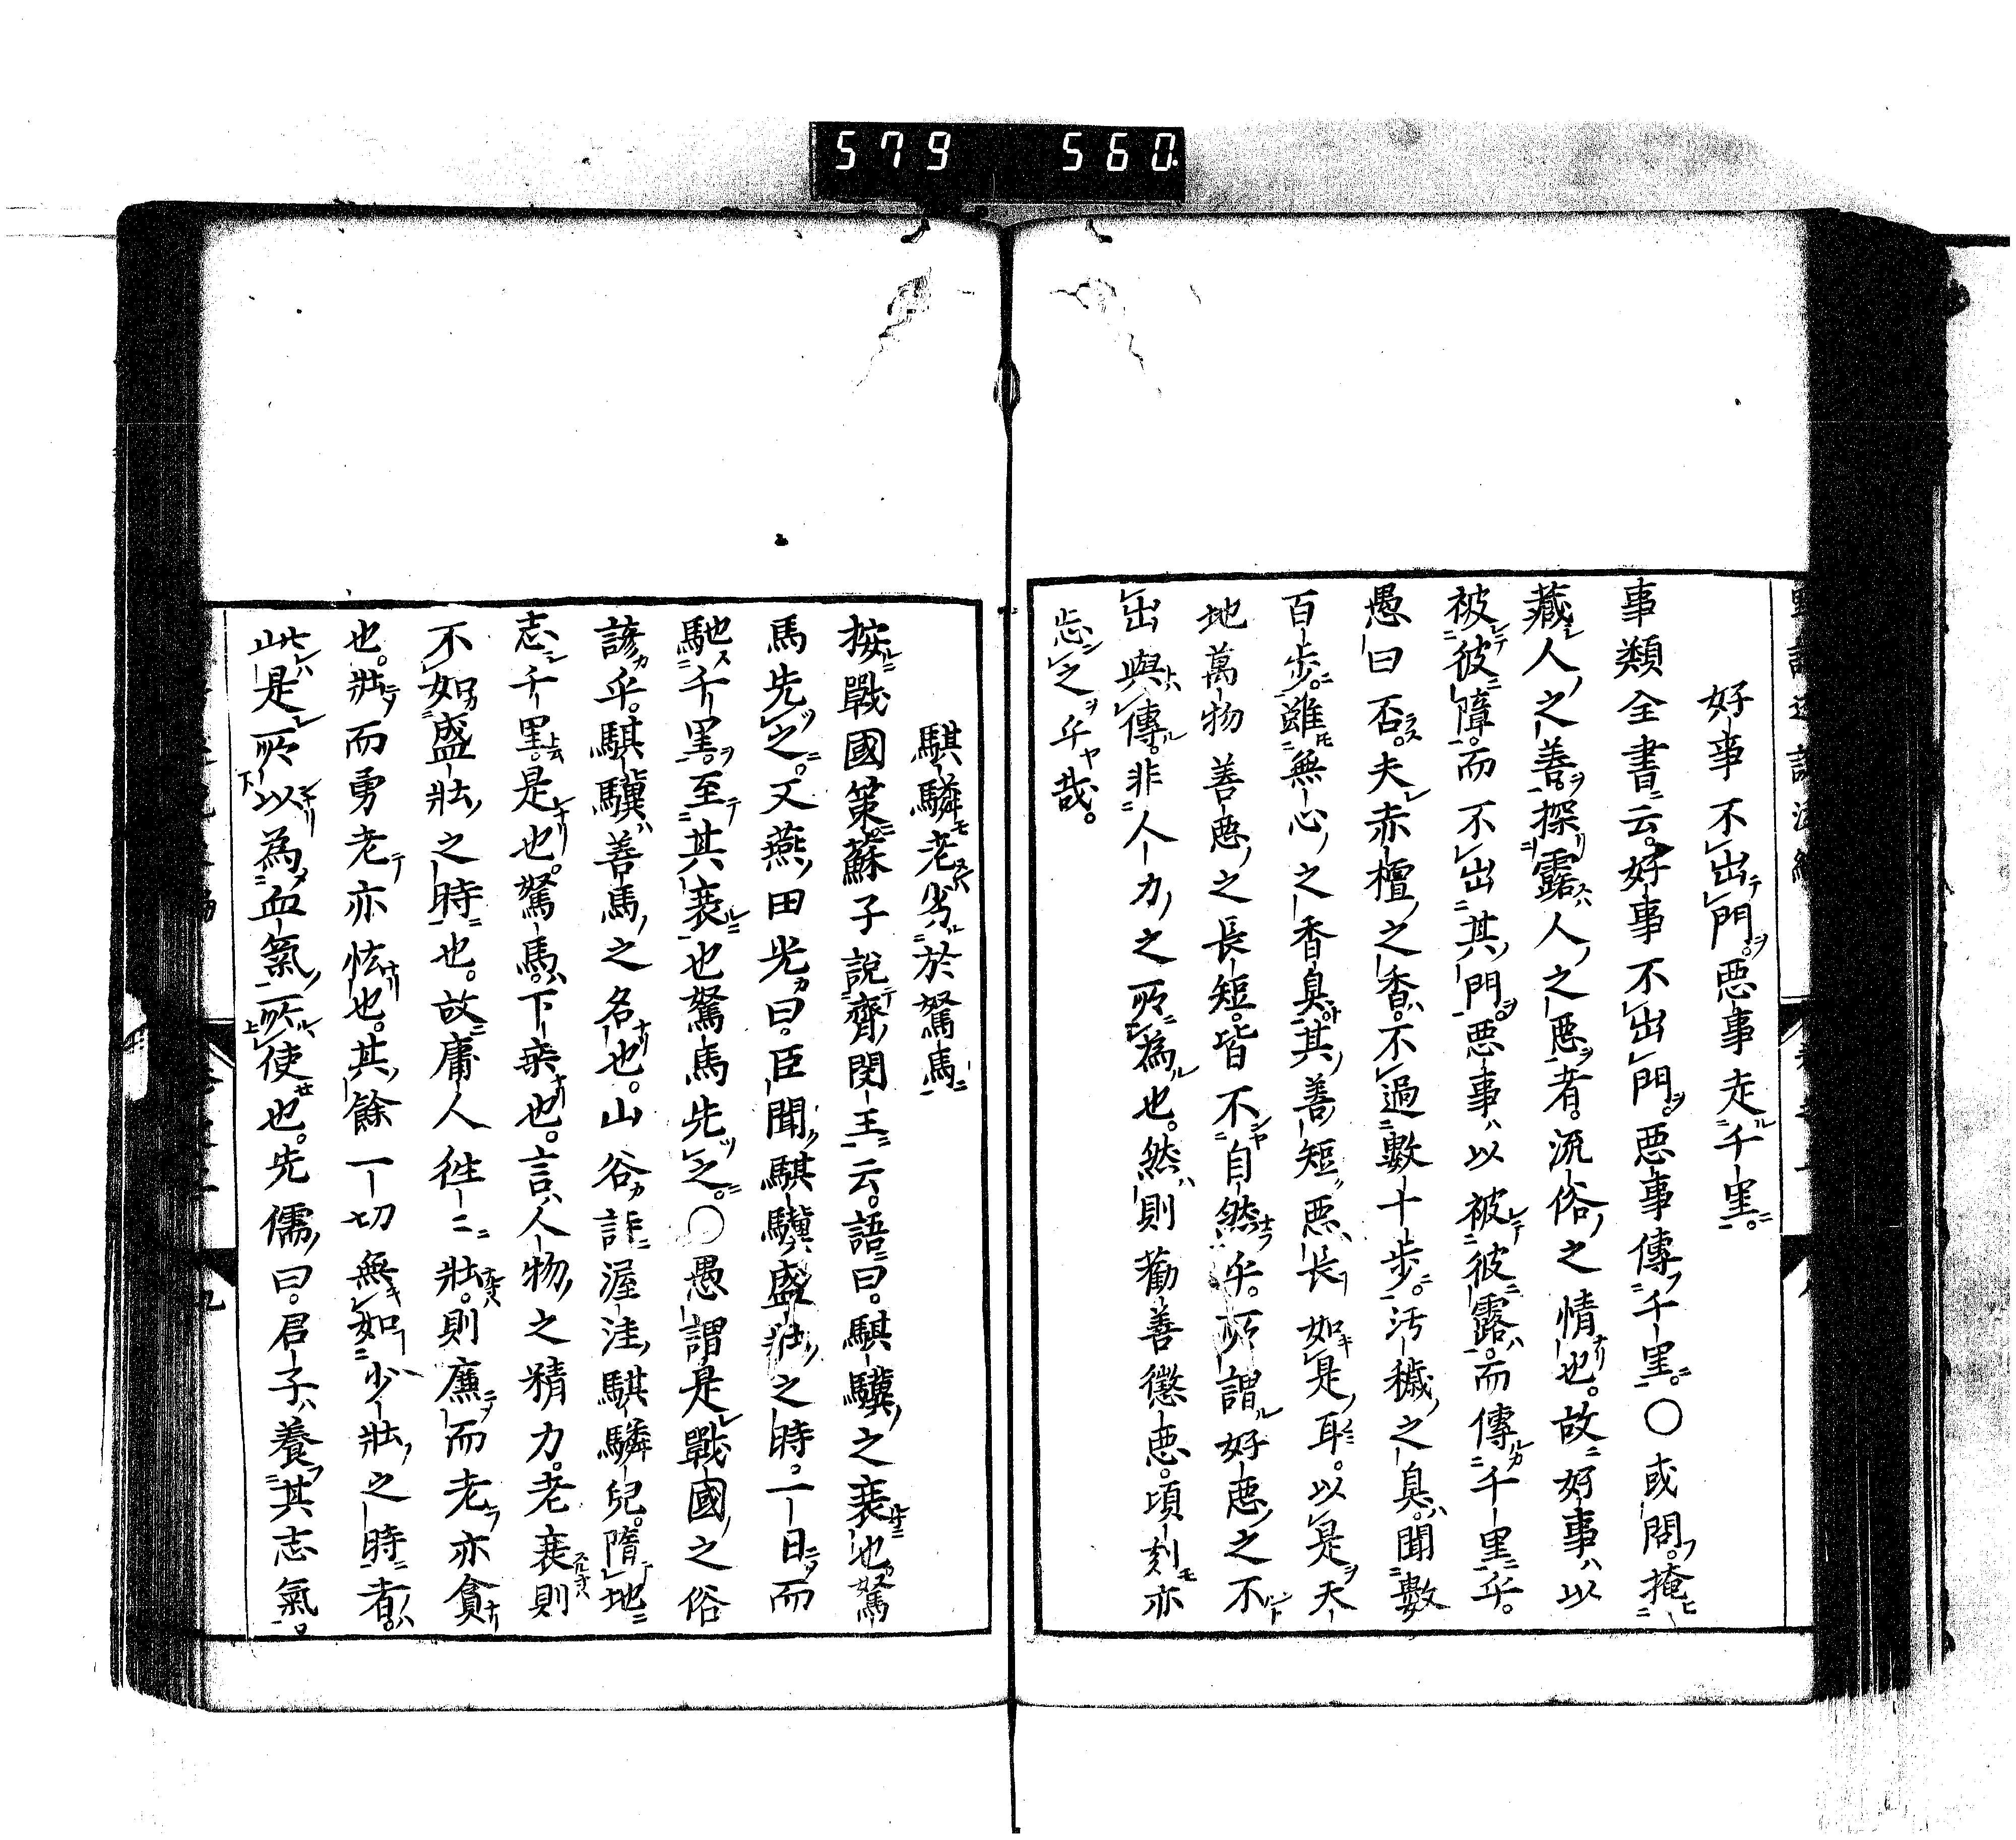 579 560
好事不出門。惡事走千里。
事類全書云。好事不出門。惡事傳千里。○或問。掩
藏人之善探露人之惡者。流俗之情也。故好事以
被彼障。而不出其門。惡事以被彼露。而傳千里乎。
愚曰否。夫赤檀之香。不過數十步。汚穢之臭。聞數
百步。雖無心之香臭。其善短惡長如是耳。以是天
地萬物善惡之長短。皆不自然乎。所謂好惡之不
出與傳。非人力之所為也。然則勸善懲惡。頃刻亦
忘之乎哉。
騏驎老劣於駑馬
按戰國策蘇子說齊閔王云。語曰。騏驥之衰也駑
馬先之。又燕田光曰。臣聞騏驥盛壯之時。一日而
馳千里。至其衰也駑馬先之。○愚謂是戰國之俗
諺乎。騏驥善馬之名也。山谷詐渥洼騏驎兒。墮地
志千里。是也。駑馬下乘也。言人物之精力。老衰則
不如盛壯之時也。故庸人往二壯則廉而老亦貪
也。壯而勇老亦怯也。其餘一切無如少壯之時者。
此是所以為血氣所使也。先儒曰。君子養其志氣。